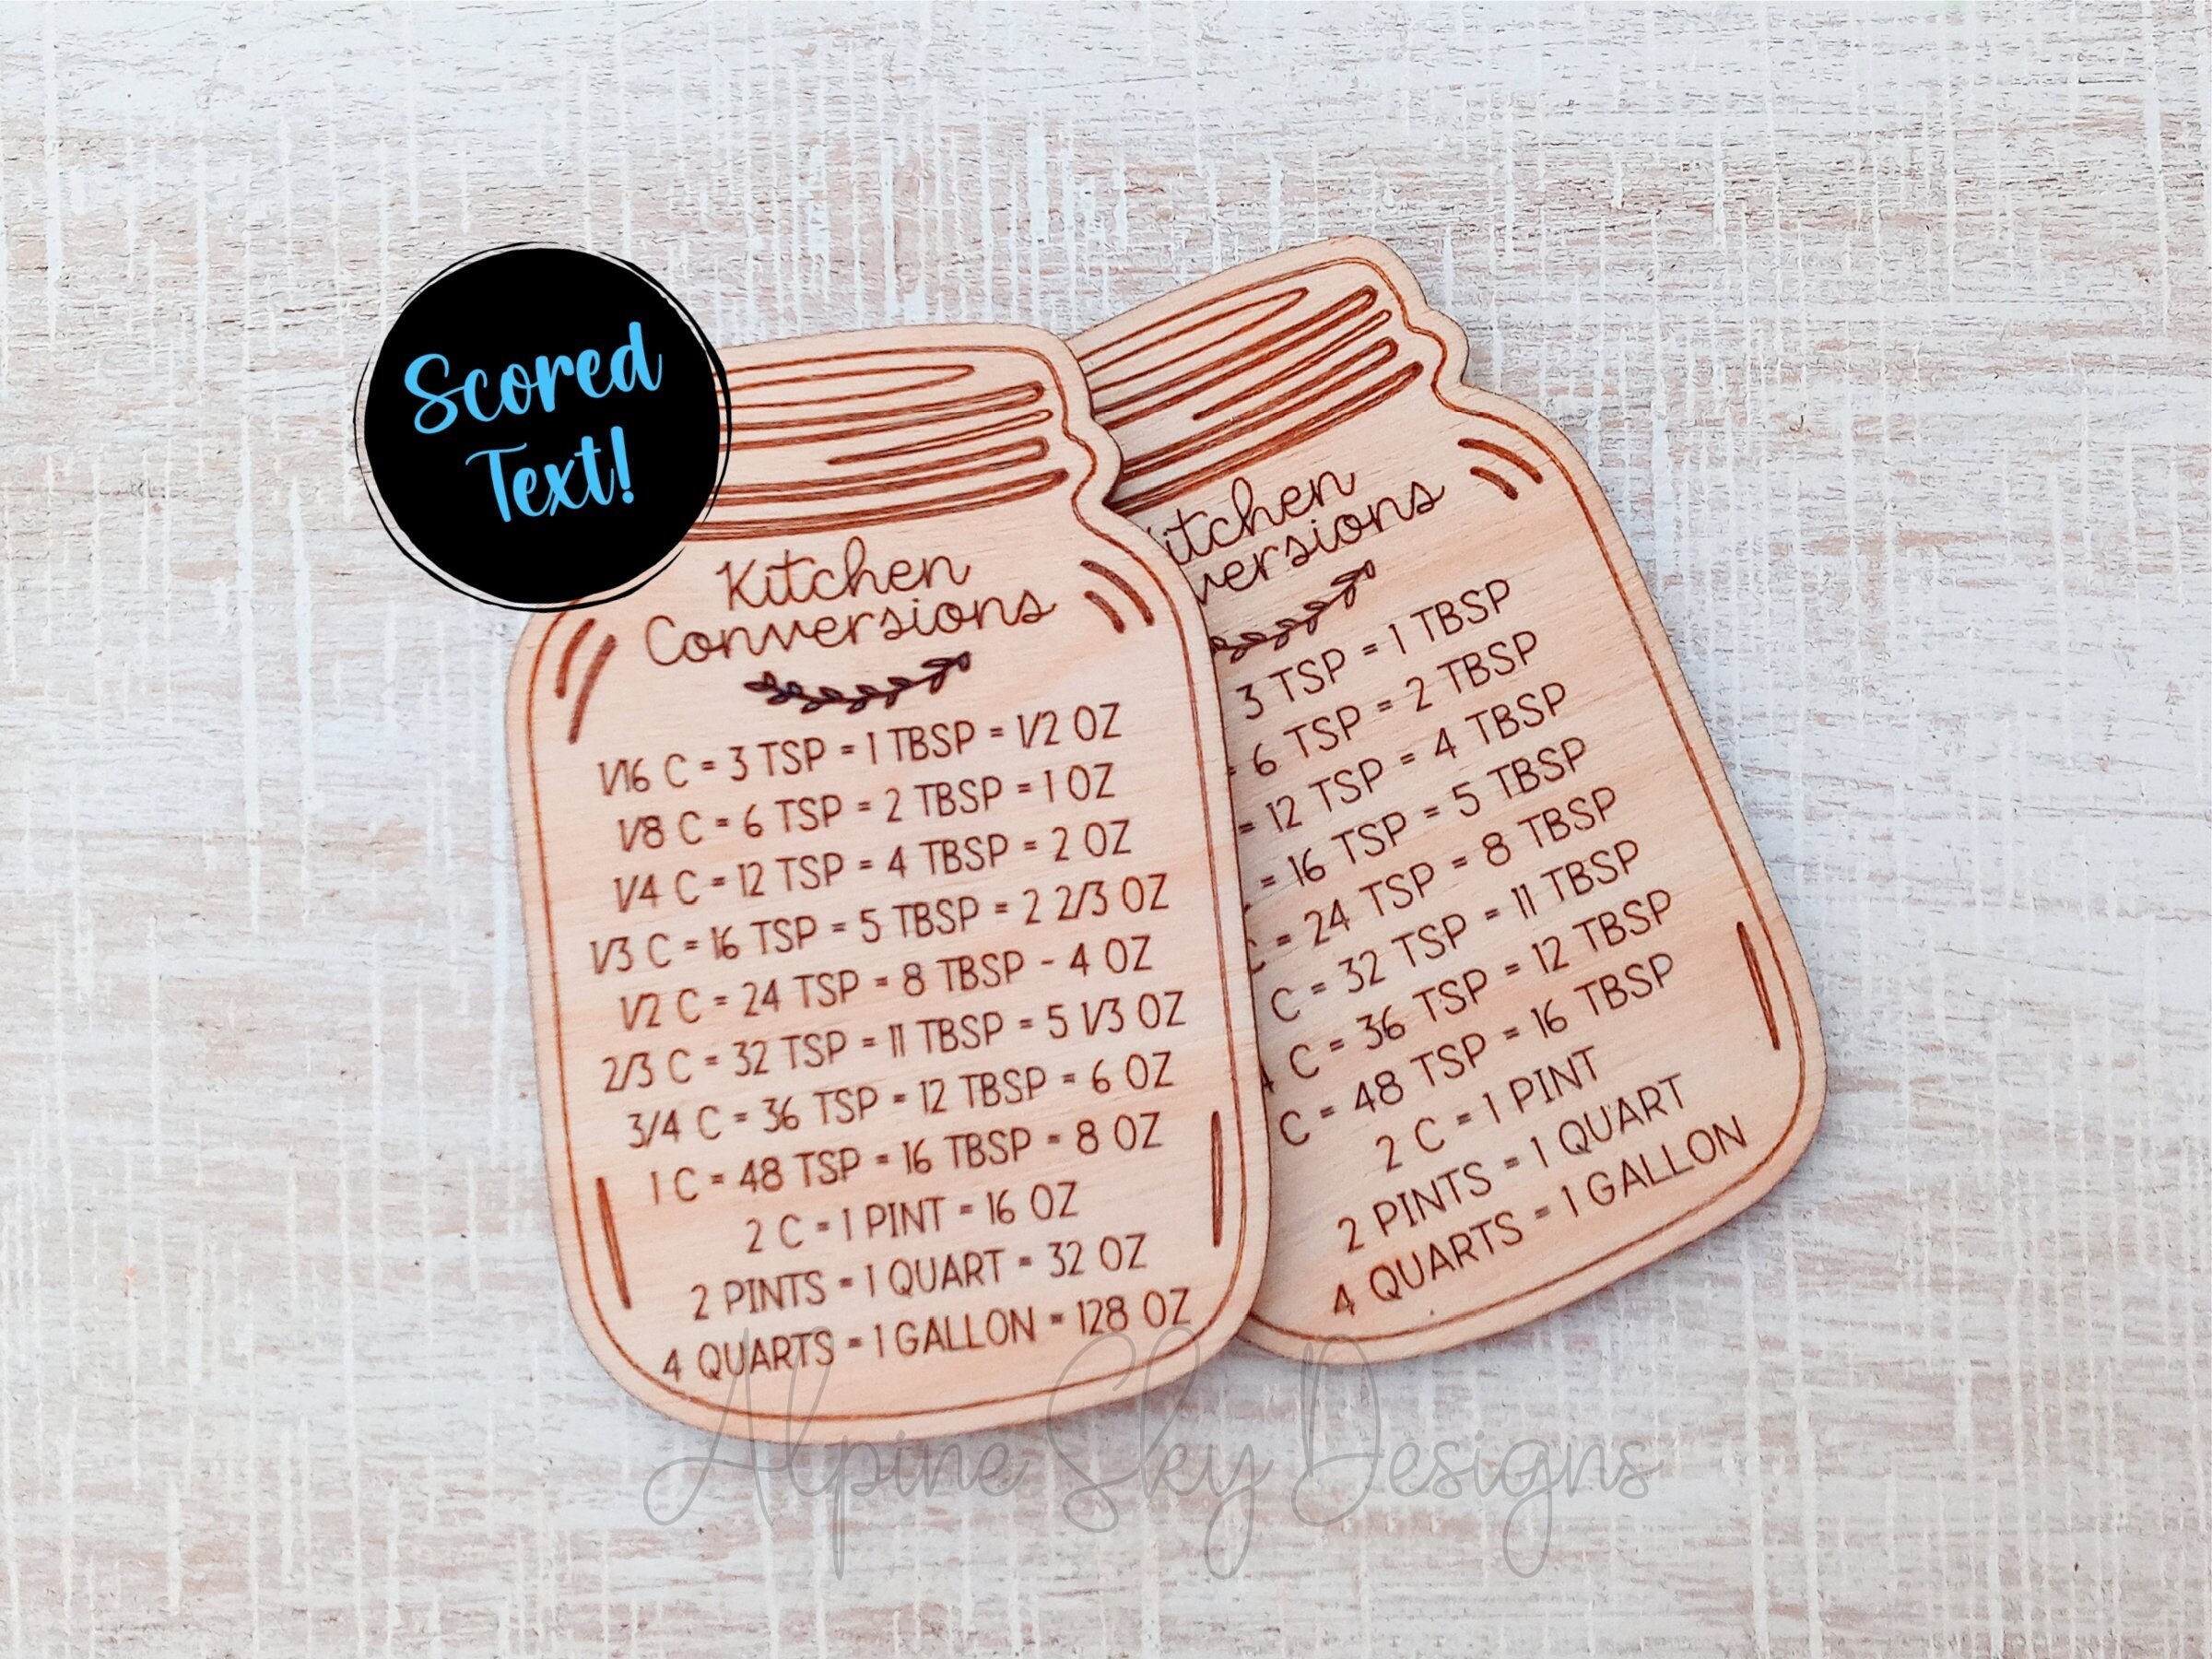 Scored
Text!
Kitchen
Conversions
1/16 C = 3 TSP = 1 TBSP = 1/2 OZ
1/8 C = 6 TSP = 2 TBSP = 1 OZ
1/4 C = 12 TSP = 4 TBSP = 2 OZ
1/3 C = 16 TSP = 5 TBSP = 2 2/3 OZ
1/2 C = 24 TSP = 8 TBSP - 4 OZ
2/3 C = 32 TSP = 11 TBSP = 5 1/3 OZ
3/4 C = 36 TSP = 12 TBSP = 6 OZ
1 C = 48 TSP = 16 TBSP = 8 OZ
2 C = 1 PINT = 16 OZ
2 PINTS = 1 QUART = 32 OZ
4 QUARTS = 1 GALLON = 128 OZ
itchen
versions
3 TSP = 1 TBSP
= 6 TSP = 2 TBSP
= 12 TSP = 4 TBSP
= 16 TSP = 5 TBSP
C = 24 TSP = 8 TBSP
C = 32 TSP = 11 TBSP
C = 36 TSP = 12 TBSP
C = 48 TSP = 16 TBSP
2 C = 1 PINT
2 PINTS = 1 QUART
4 QUARTS = 1 GALLON
Alpine Sky Designs